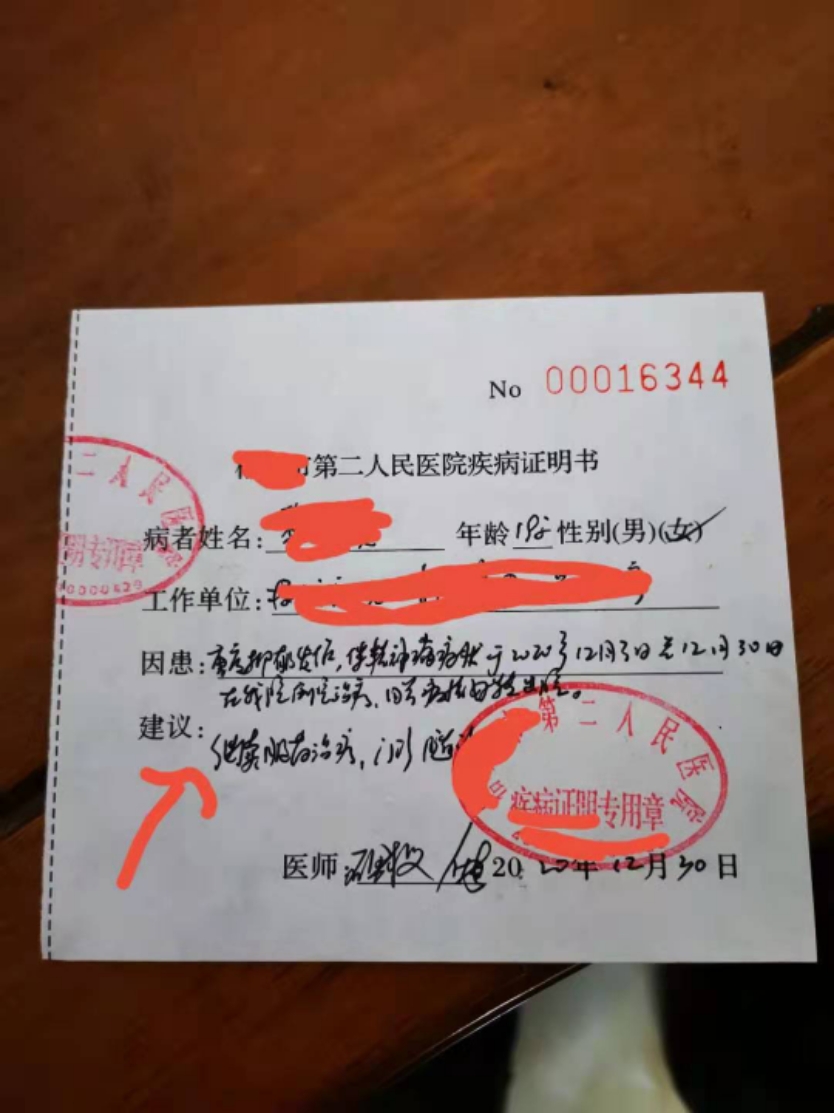 No 00016344
第二人民医院疾病证明书
病者姓名: 年龄 19岁 性别(男)(女)
工作单位:
因患: 重度抑郁发作,伴精神病症状 于2020年12月3日至12月30日
在我院住院治疗,因病情好转出院。
建议:
继续服药治疗,门诊随
医师: 2020年12月30日
第二人民医院
疾病证明专用章
二人民医院
明专用章
0000829